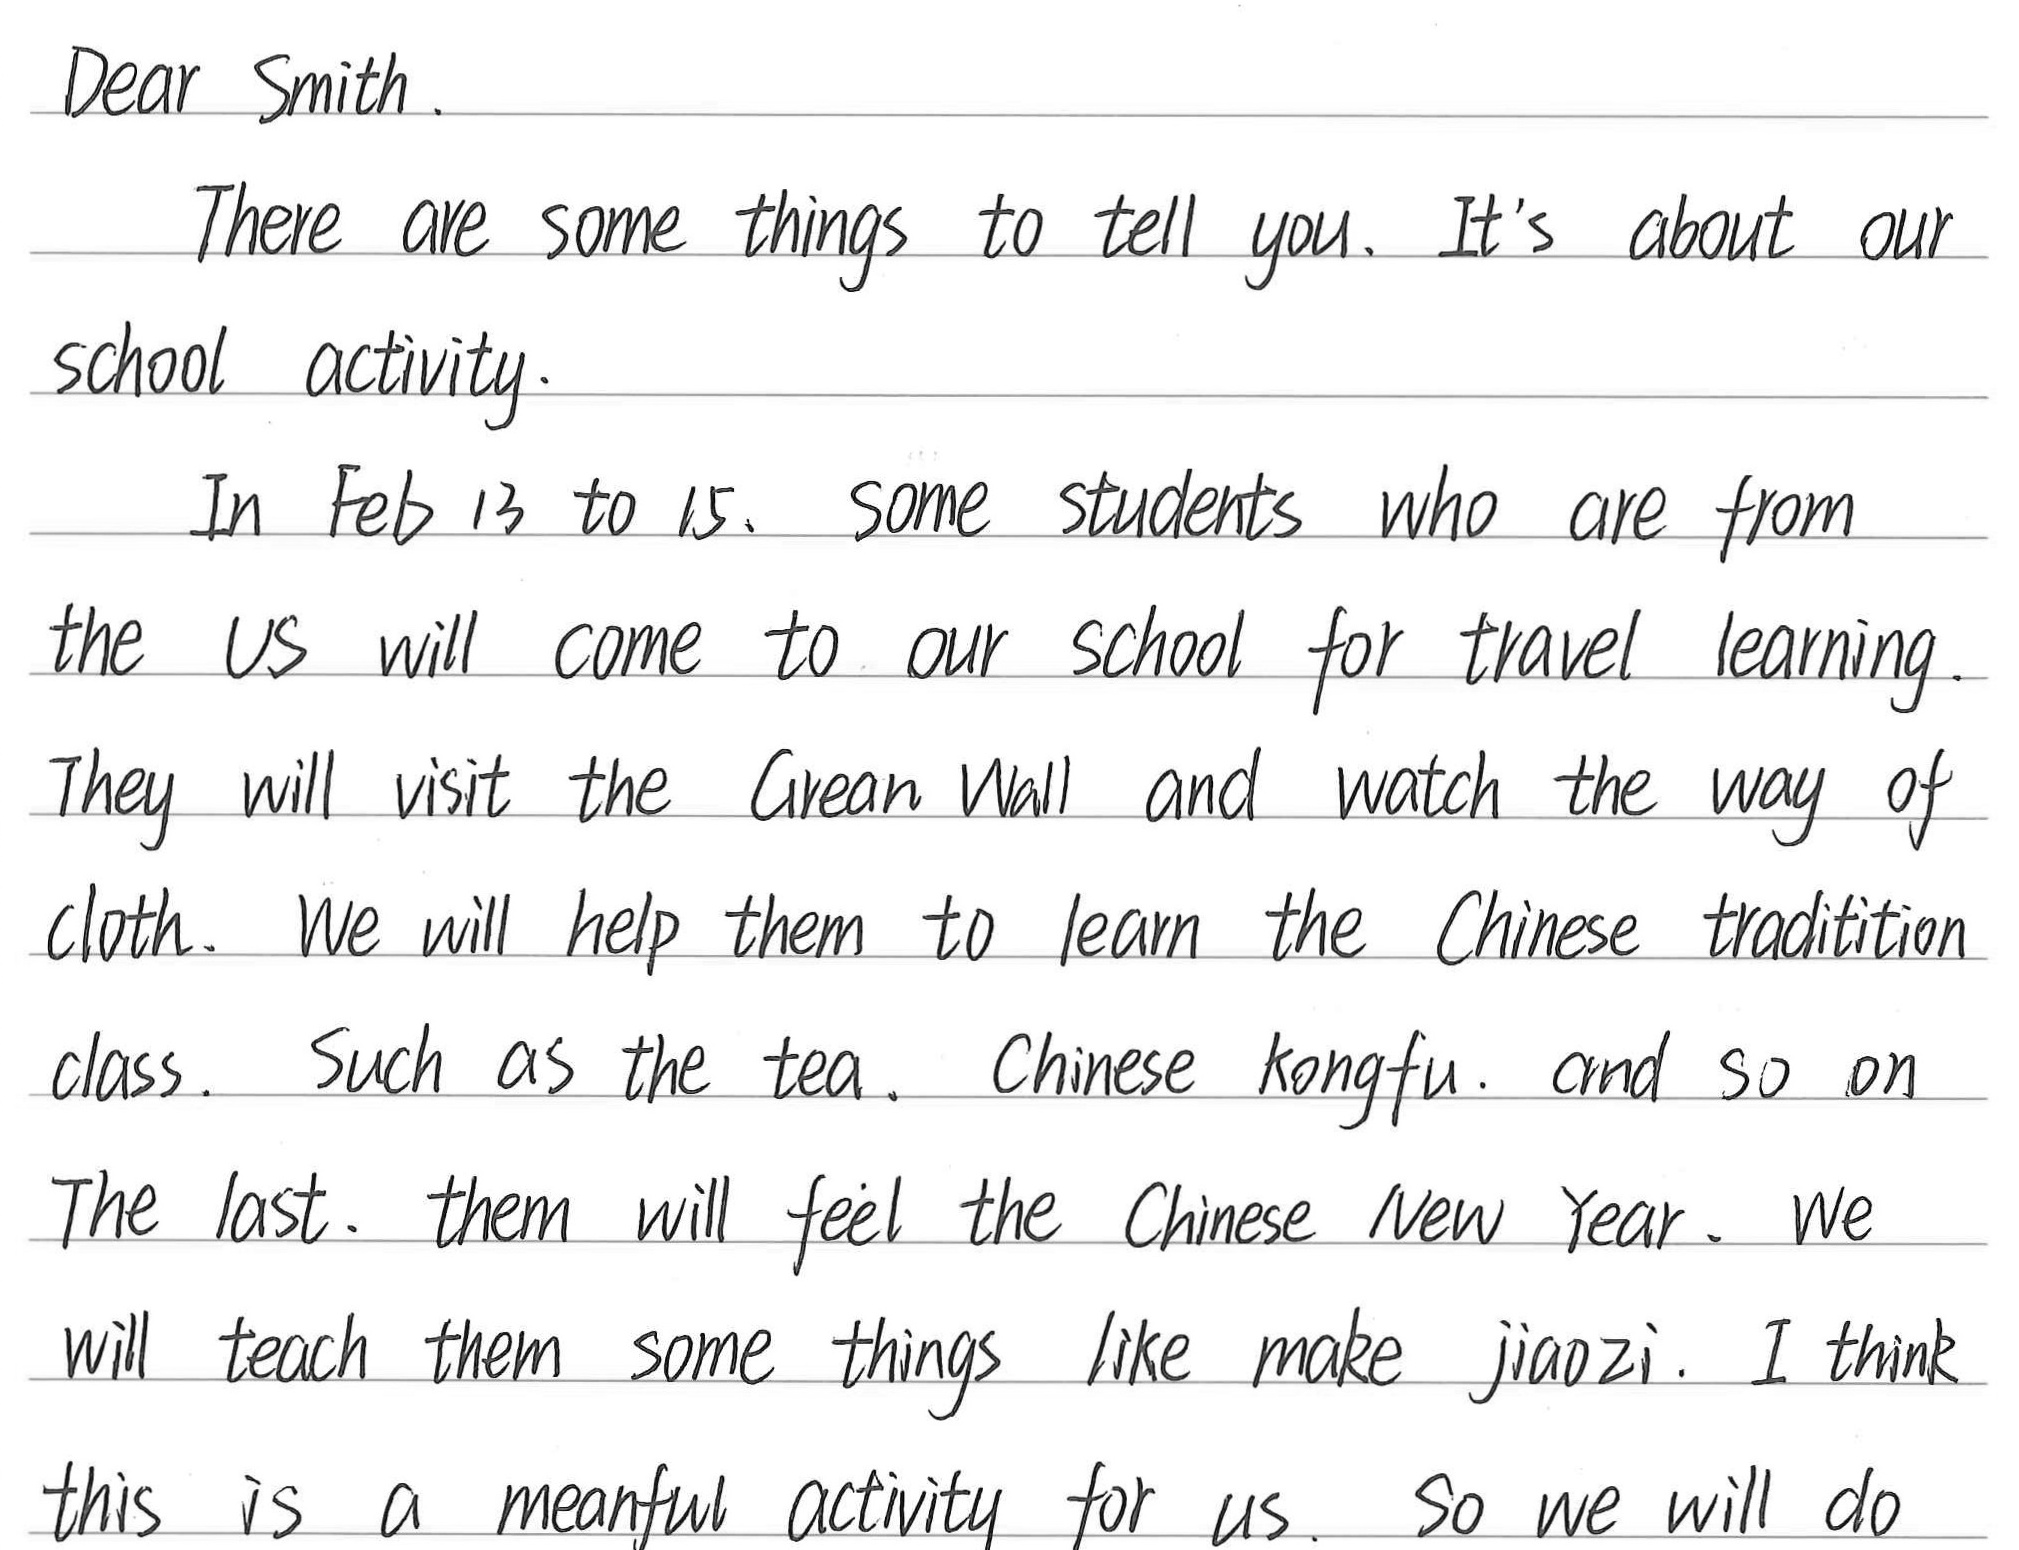 Dear Smith.
There are some things to tell you. It's about our
school activity.
In Feb 13 to 15. some students who are from
the US will come to our school for travel learning.
They will visit the Grean Wall and watch the way of
cloth. We will help them to learn the Chinese traditition
class. Such as the tea. Chinese kongfu. and so on
The last. them will feel the Chinese New Year. We
will teach them some things like make jiaozi. I think
this is a meanful activity for us. So we will do